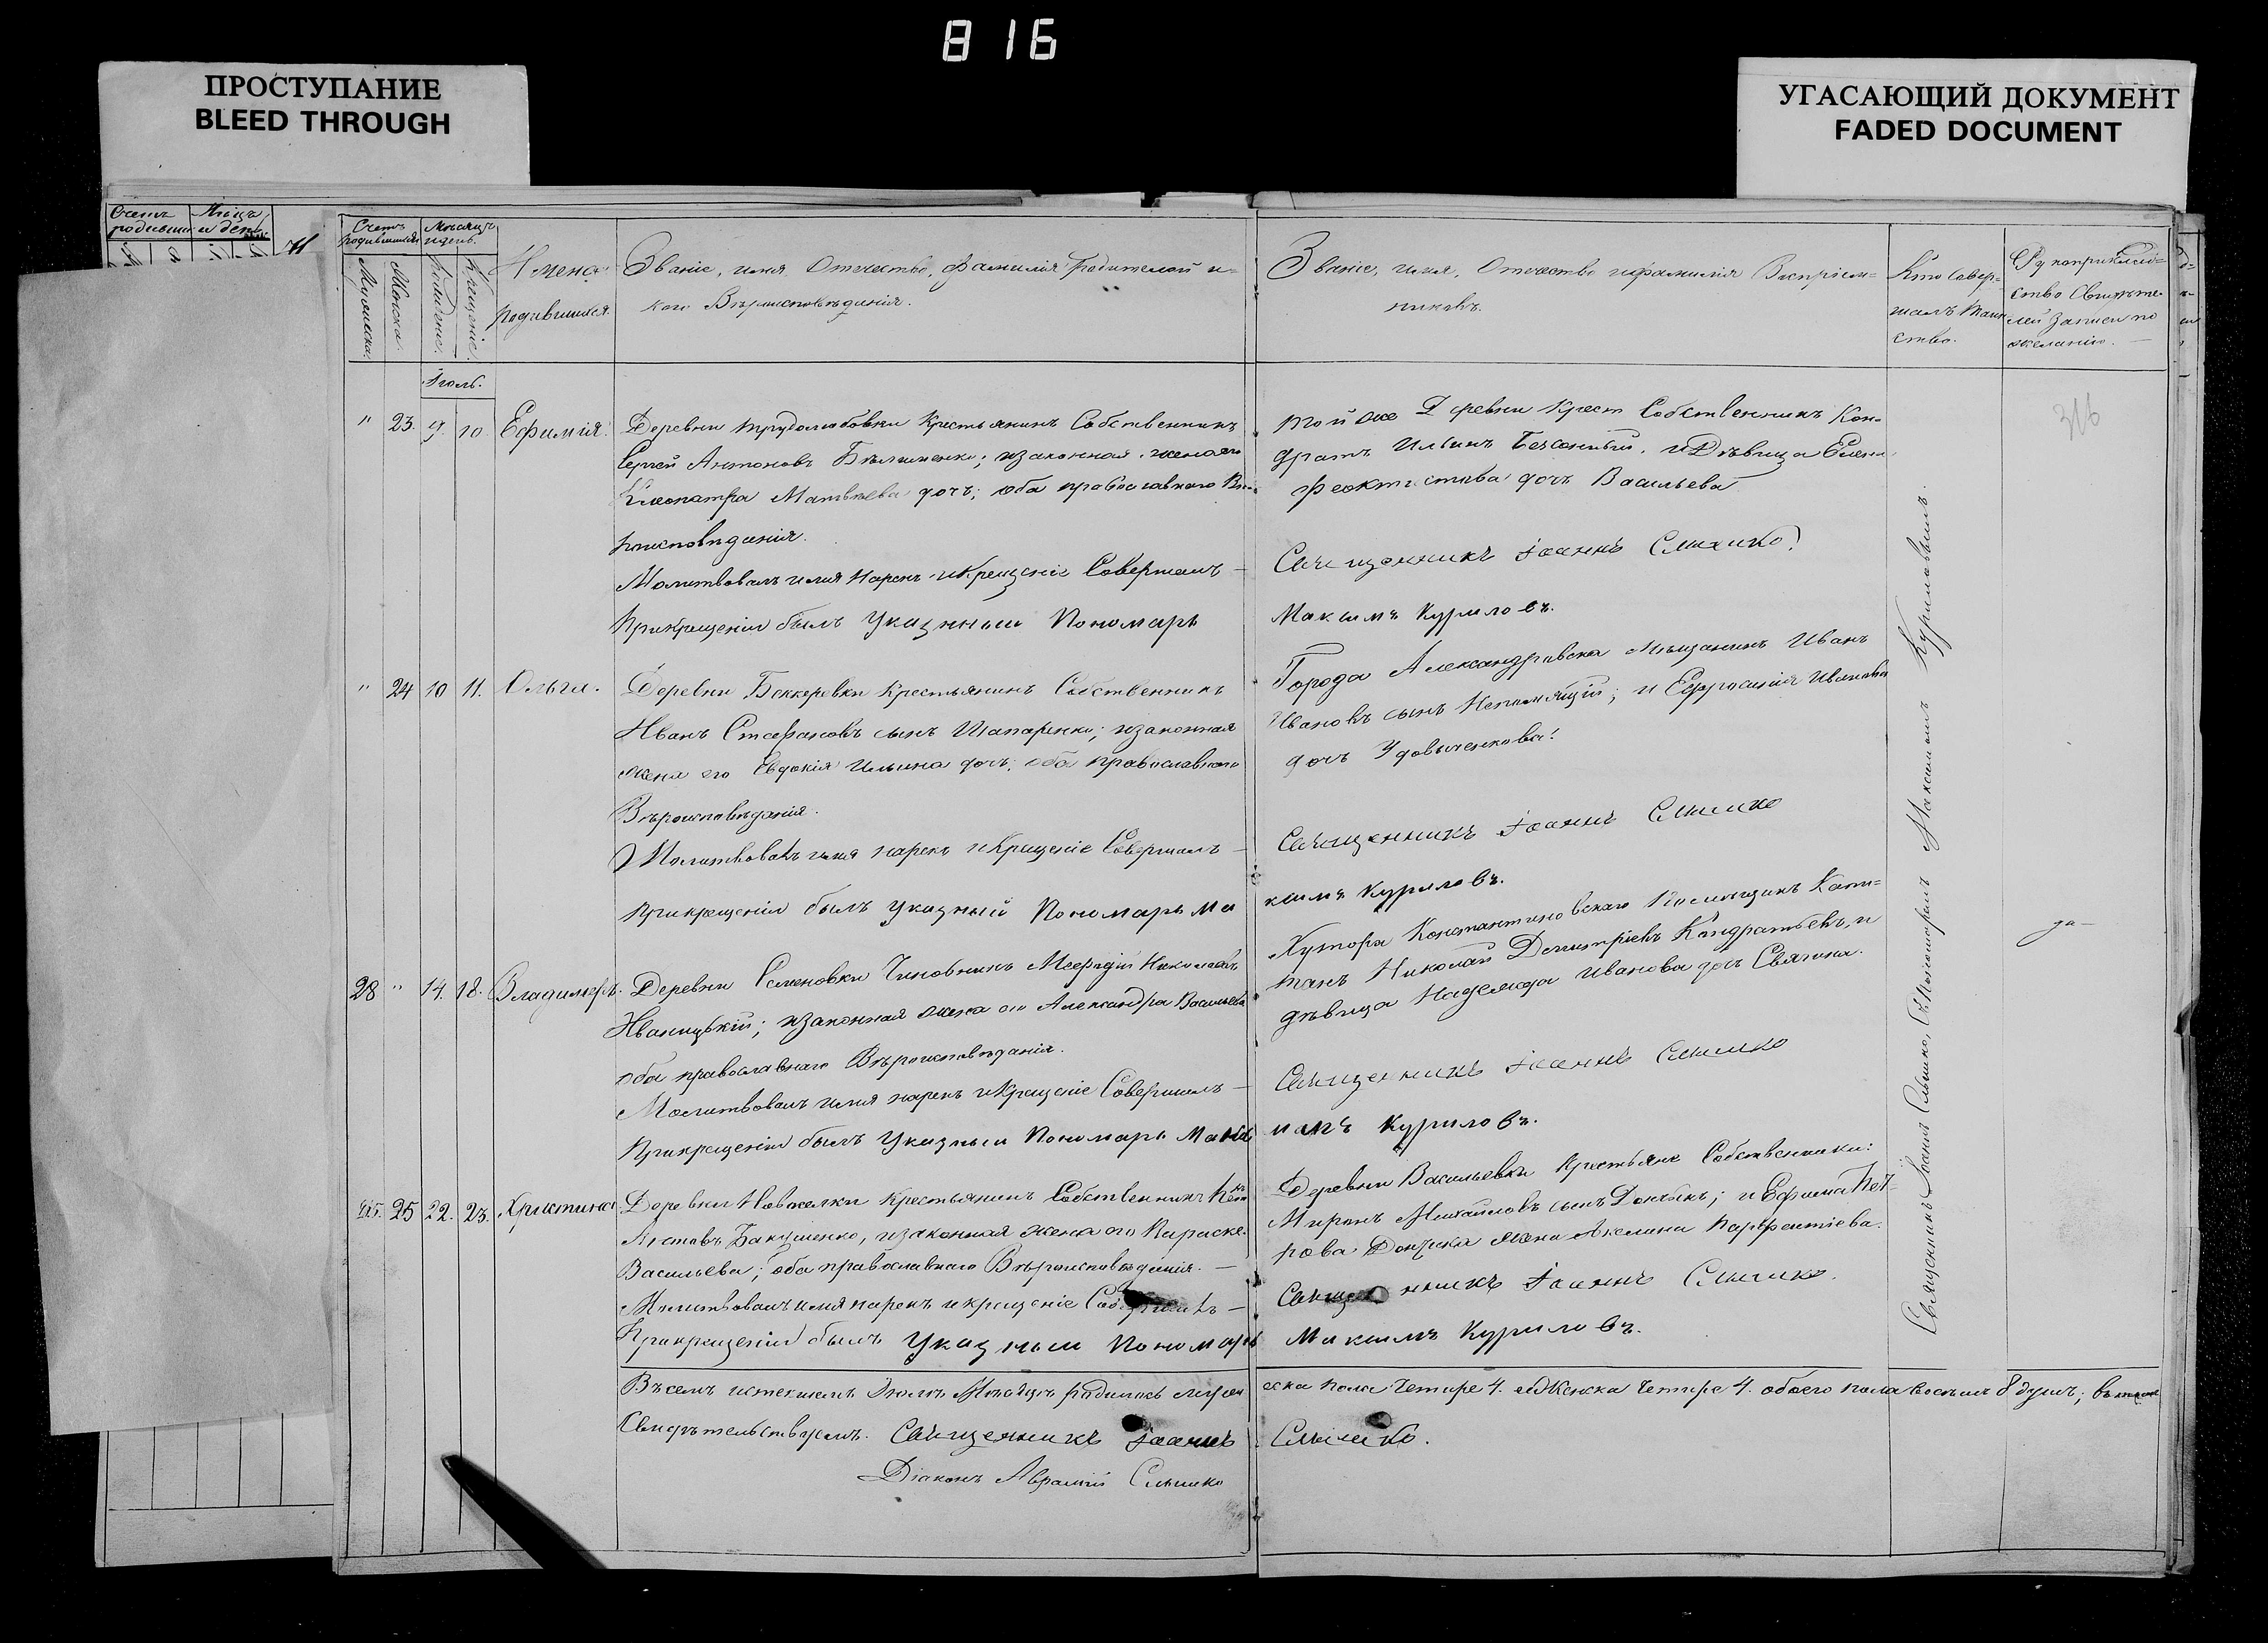 816
ПРОСТУПАНИЕ
BLEED THROUGH
УГАСАЮЩИЙ ДОКУМЕНТ
FADED DOCUMENT
Счетъ родившихся
Мужеска.
Женска.
Мѣсяцъ и день.
Рожденіе.
Крещеніе.
Имена родившихся.
Званіе, имя, Отечество, фамилія Родителей и
кого Вѣроисповѣданія.
Званіе, имя, Отечество и фамилія Воспріем-
никовъ.
Кто совер-
шалъ Таин
ство.
Рукоприклад-
ство Свидѣте-
лей записи по
желанію.
Іюль.
316
" 23. 9. 10 Ефимія.
Деревни Трудолюбовки Крестьянинъ Собственникъ
Сергей Антоновъ ; и законная жена его
Клеопатра Матвѣева дочъ; оба православнаго Вѣ-
роисповѣданія.
Молитвовалъ имя Нарекъ и Крещеніе Совершалъ —
При крещеніи былъ Указный Пономарь
той же Деревни Крест Собственникъ Кон-
дратъ Ильинъ и Дѣвица Елена
Феоктистова дочъ Васильева
Священникъ Іоаннъ Слышко.
Максимъ Куриловъ.
" 24 10 11. Ольга.
Деревни Беккеревки Крестьянинъ Собственникъ
Иванъ Стефановъ сынъ Шапаренко; и законная
жена его Евдокія Ильина дочъ; оба православнаго
Вѣроисповѣданія.
Молитвовалъ имя нарекъ и Крещеніе Совершалъ —
При крещеніи былъ Указный Пономарь Ма
Города Александровска Мѣщанинъ Иванъ
Ивановъ сынъ Непомнящій; и Ефросинія Иванова
дочъ Удовыченкова.
Священникъ Іоаннъ Слышко
ксимъ Куриловъ.
28 " 14. 18. Владимеръ.
Деревни Семеновки Чиновникъ Николаевъ
Иваницькій; и законная жена его Александра Васильева
оба православнаго Вѣроисповѣданія.
Молитвовалъ имя нарекъ и Крещеніе Совершалъ —
При крещеніи былъ Указный Пономарь Макси
Хутора Константиновскаго Помѣщикъ Капи-
танъ Николай Димитріевъ Кандратьевъ, и
дѣвица Надежда Иванова дочъ Святина.
Священникъ Іоаннъ Слышко
Куриловъ.
да —
25 22. 23. Христина
Деревни Крестьянинъ Собственникъ
Бакушенко, и законная жена его Параске.
Васильева; оба православнаго Вѣроисповѣданія. —
Молитвовалъ имя нарекъ и крещеніе Совершалъ —
При крещеніи былъ Указный Пономарь
Деревни Васильевки Крестьяне Собственники:
Миронъ Михайловъ сынъ ; и Ефима Пет-
рова жена Акелина Парфентіева.
Священникъ Іоаннъ Слышко.
Максимъ Куриловъ.
Священникъ Іоаннъ Слышко, съ Пономаремъ Максимомъ Куриловымъ.
Въ семъ истекшемъ Іюлѣ Мѣсяцѣ родилось мужеска пола Четире 4. Женска Четире 4. обоего пола восемь 8 душъ; въ
Свидѣтельствуемъ. Священникъ Іоаннъ Слышко.
Діаконъ Аврамій Слышко